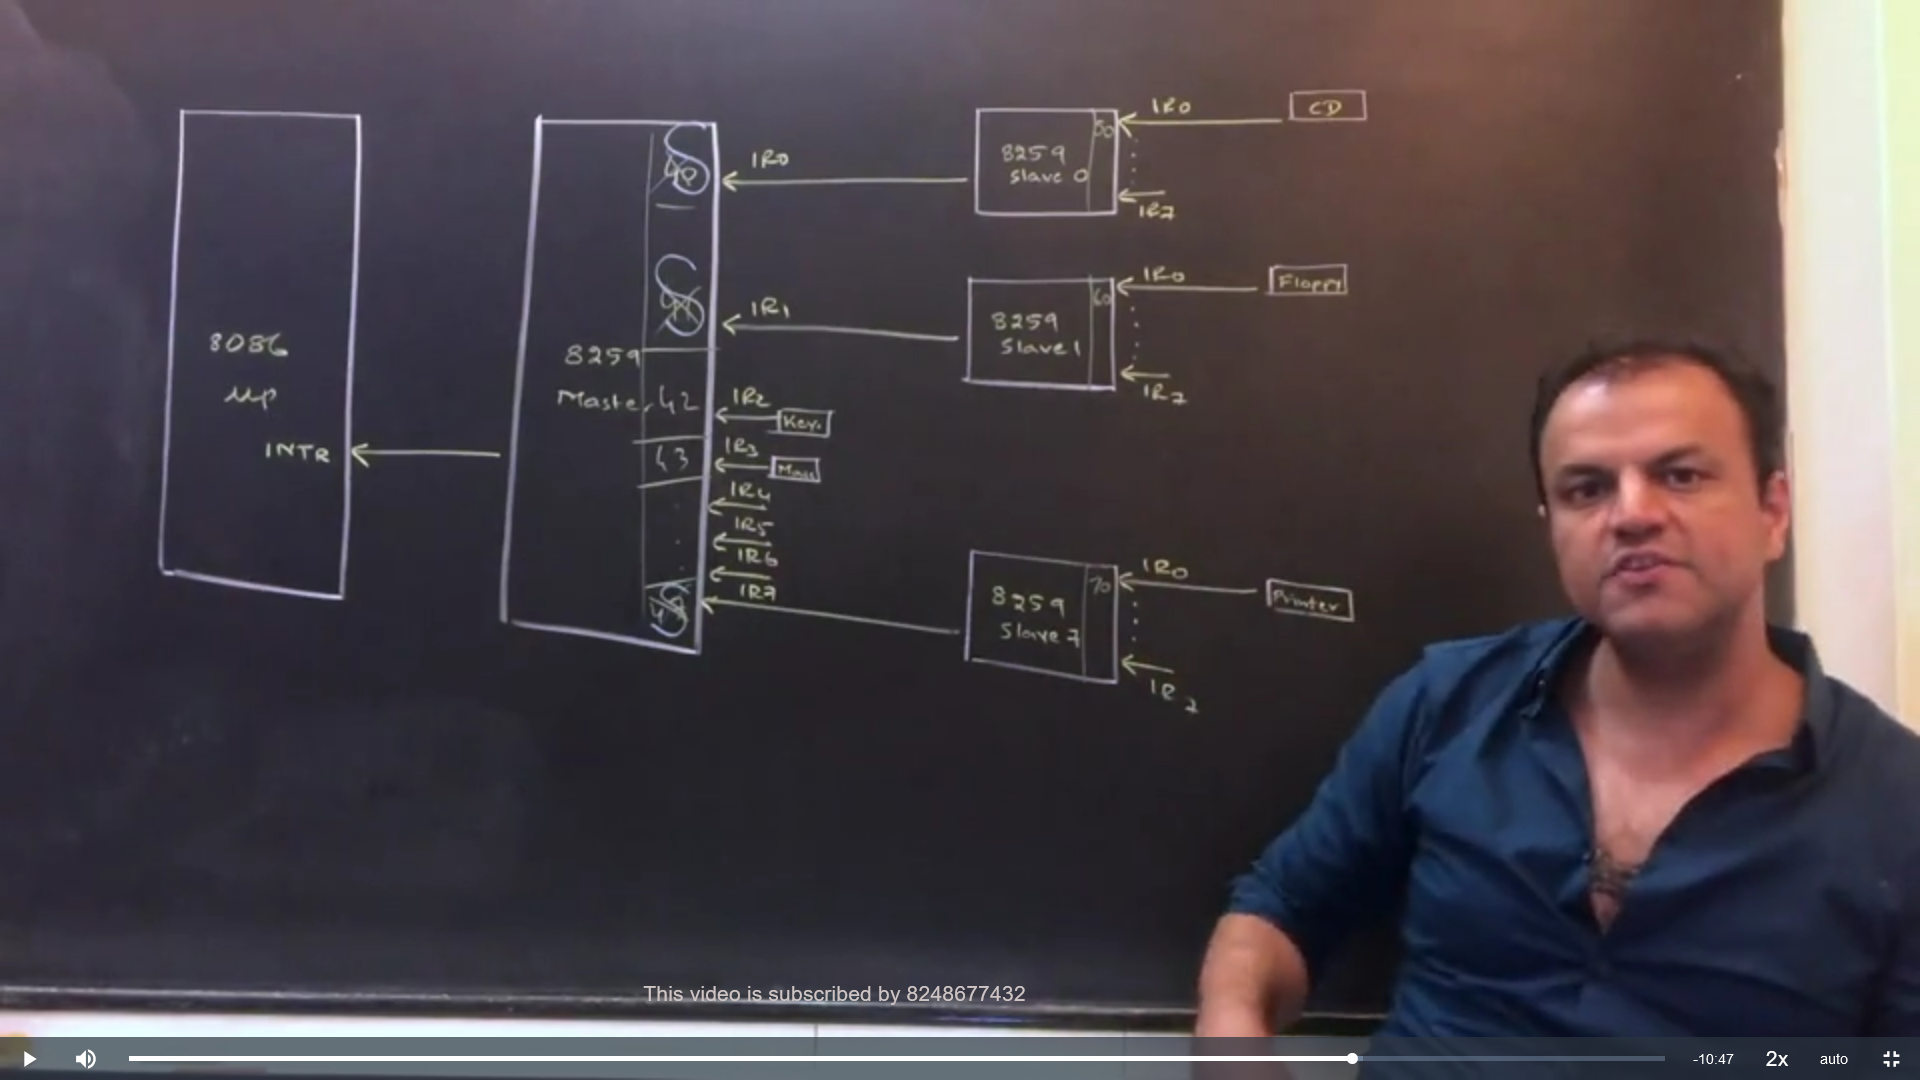 8086
μp
INTR
8259
Master
S
S
42
43
S
IR0
IR1
IR2
Key.
IR3
IR4
IR5
IR6
IR7
8259
Slave 0
50
IR0
CD
IR7
8259
Slave 1
60
IR0
Floppy
IR7
8259
Slave 7
70
IR0
Printer
IR7
This video is subscribed by 8248677432
-10:47
2x
auto